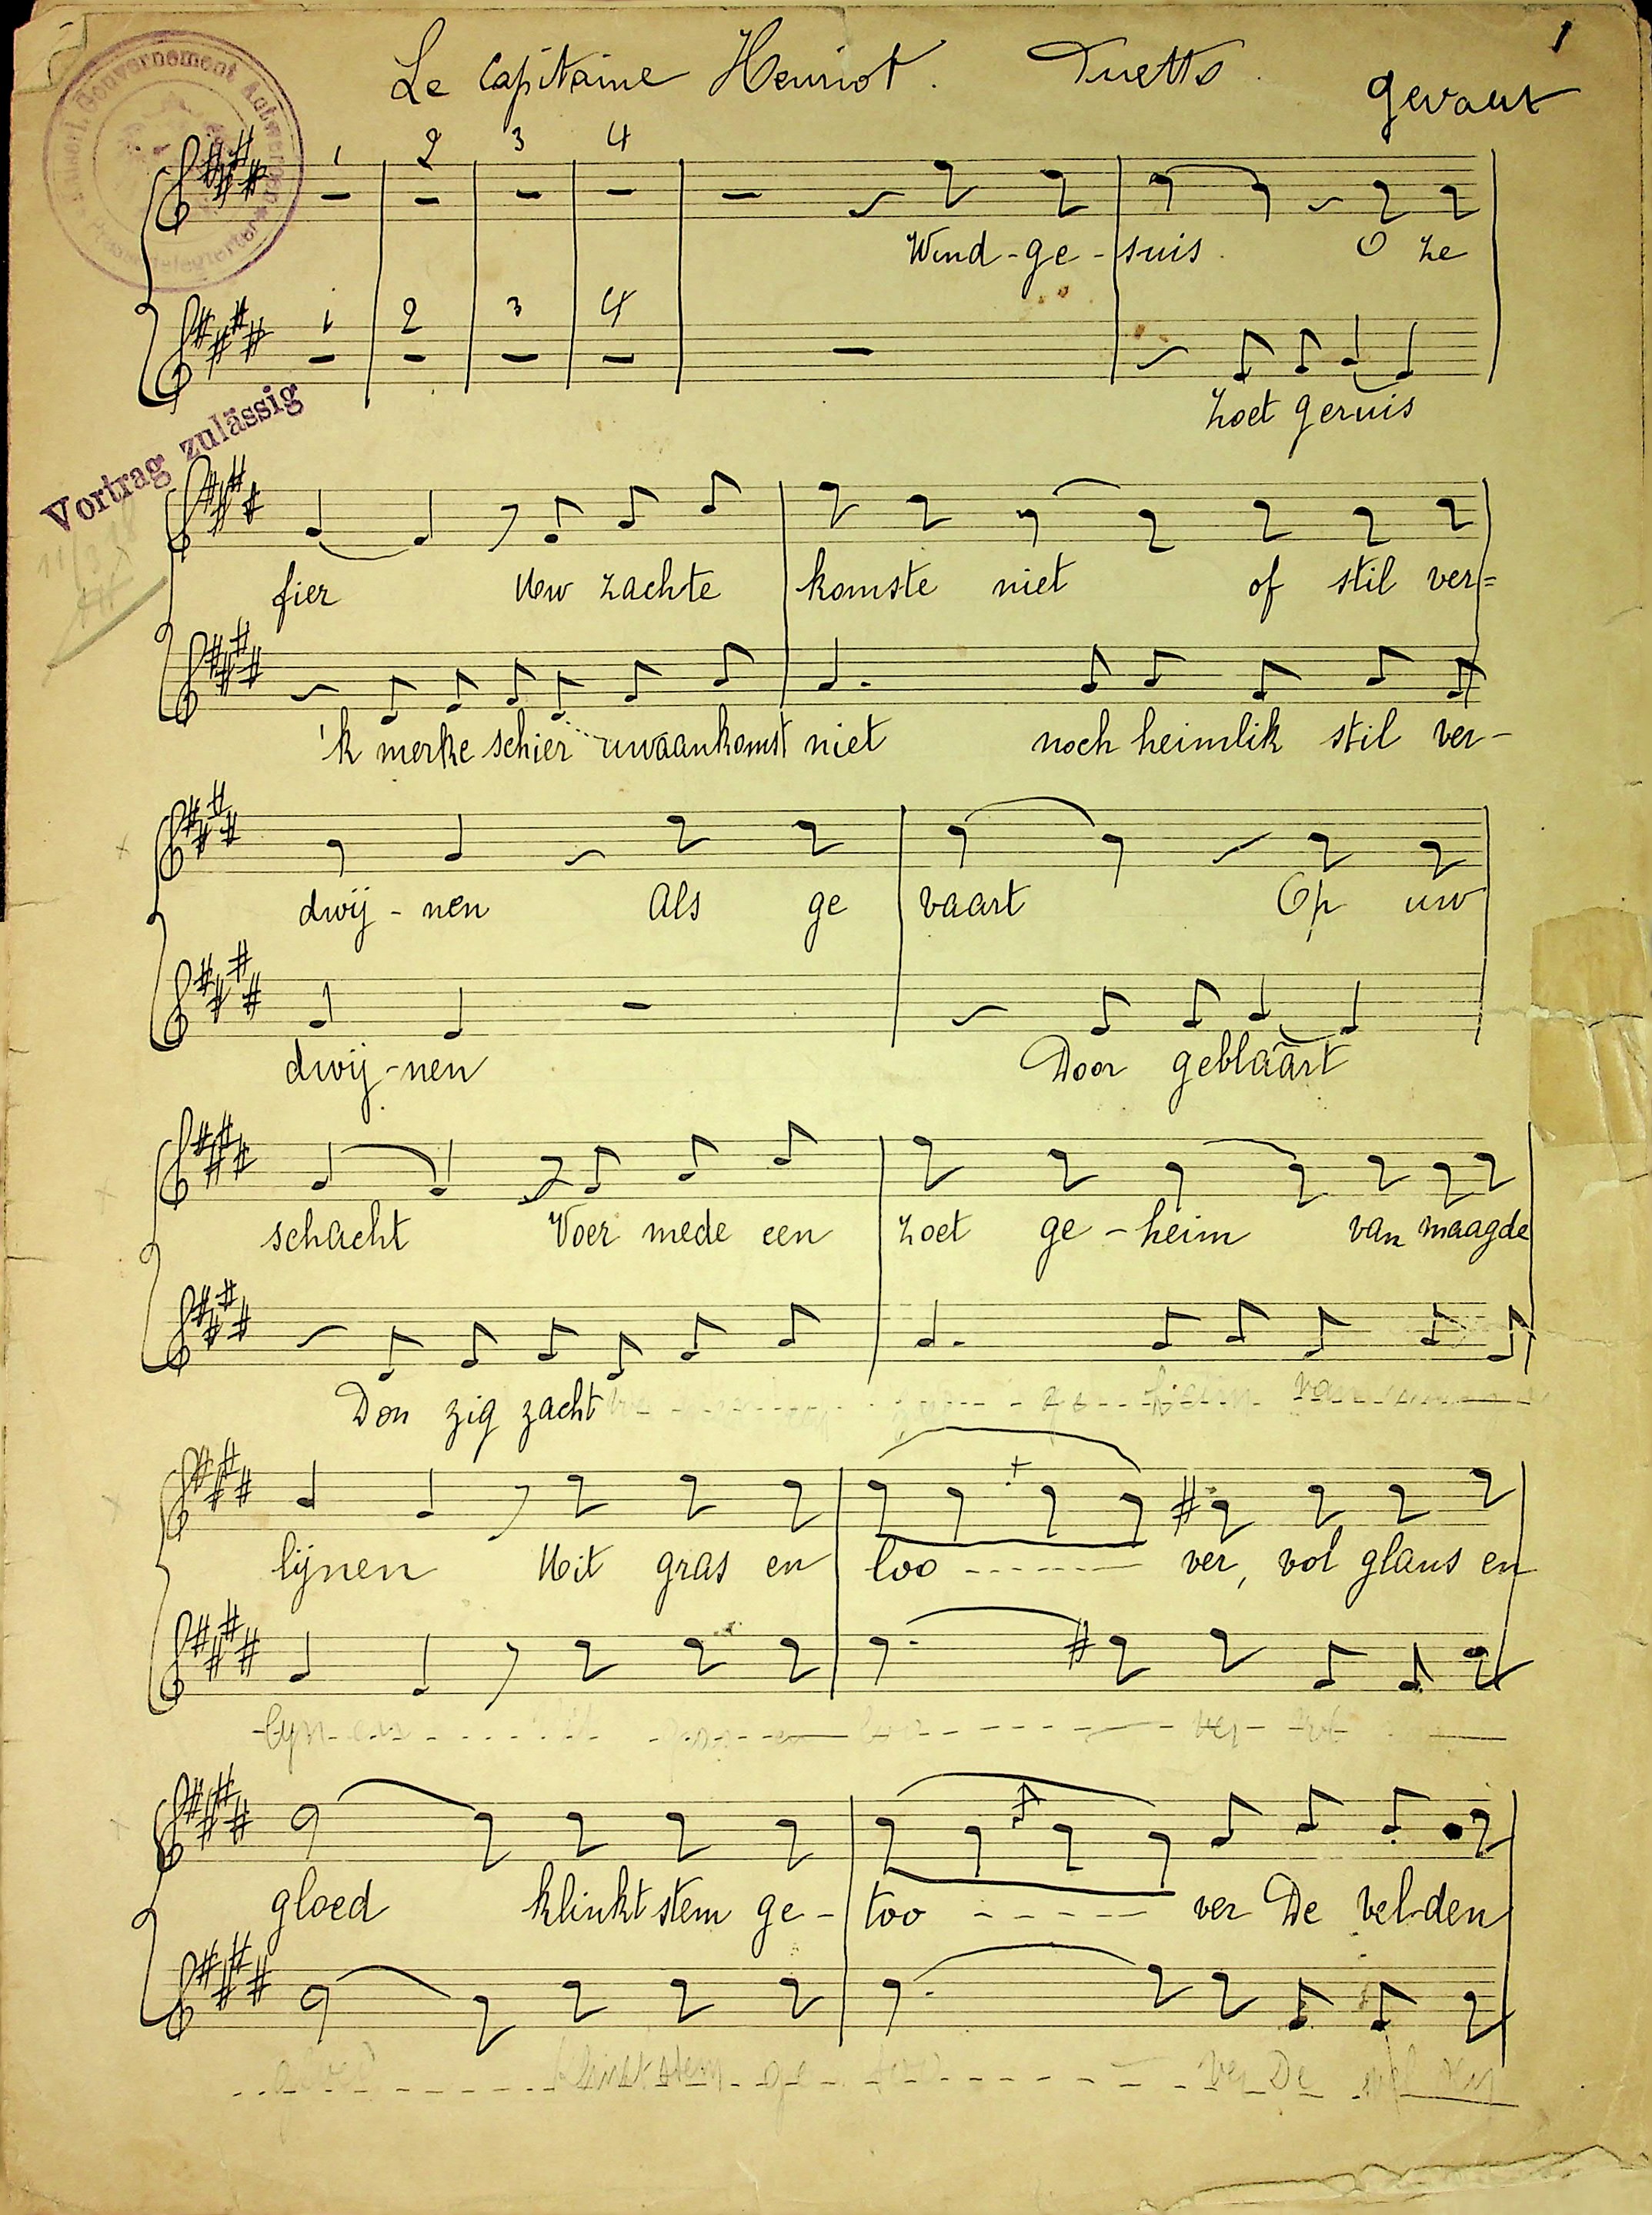 1
Le Capitaine Henriot. Duetto.
Gevaert
Gouvernement Antwerpen
Pressedelegierter
1 2 3 4
Wind-ge-suis. O ze
1 2 3 4
Zoet geruis
Vortrag zulässig
11/3 18
fier Uw zachte komste niet of stil ver=
'k merke schier uw aankomst niet noch heimlik stil ver-
dwij-nen Als ge vaart Op uw
dwij-nen Door geblaart
schacht Voer mede een zoet ge-heim van maagde
Don zig zacht ge heim van
lijnen Uit gras en loo ------ ver, vol glans en
lijn-en ver
gloed klinkt stem ge-too ----- ver De vel-den
gloed klinkt stem ge ver De vel den